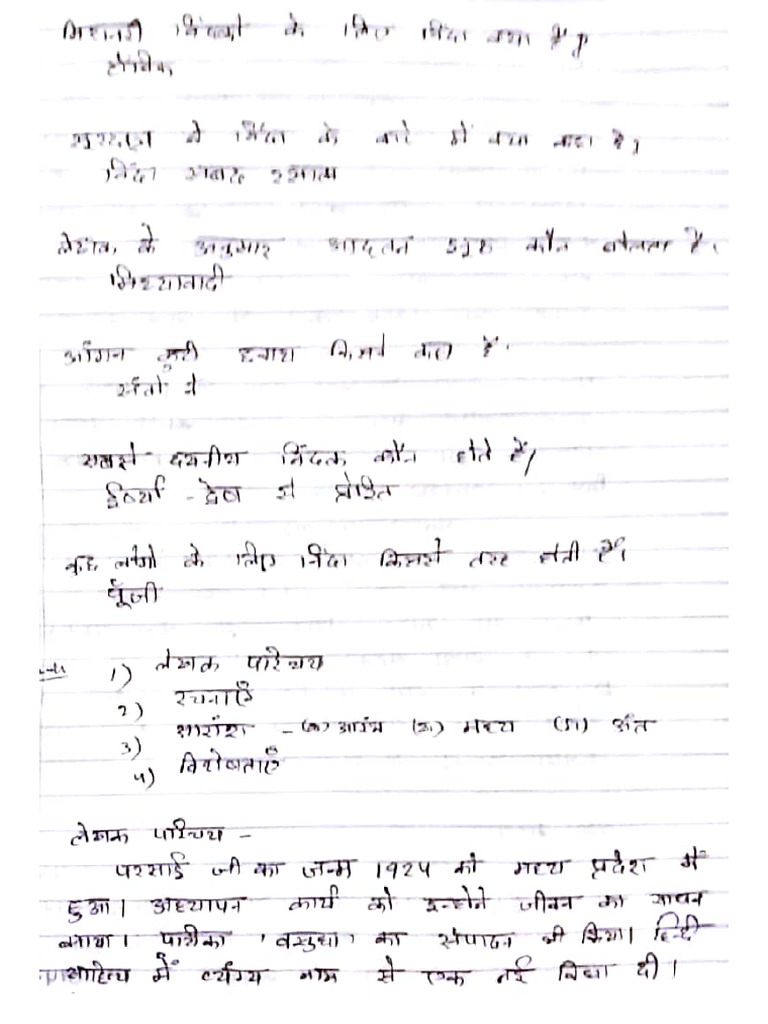 मिशनरी निंदकों के लिए निंदा क्या है।
टॉनिक
सूरदास ने निंदा के बारे में क्या कहा है।
निंदा सबद रसाल
लेखक के अनुसार आदतन झूठ कौन बोलता है।
मिथ्यावादी
आँगन कुटी छवाय किसने कहा है.
संतों ने
सबसे दयनीय निंदक कौन होते हैं।
ईर्ष्या - द्वेष से प्रेरित
कुछ लोगो के लिए निंदा किसकी तरह होती हैं।
पूँजी
1) लेखक परिचय
2) रचनाएँ
3) सारांश - (क) आरंभ (ख) मध्य (ग) अंत
4) विशेषताएँ
लेखक परिचय -
परसाई जी का जन्म 1924 को मध्य प्रदेश में
हुआ। अध्यापन कार्य को इन्होने जीवन का साधन
बनाया। पत्रिका 'वसुधा' का संपादन भी किया। हिन्दी
साहित्य में व्यंग्य नाम से एक नई विधा दी।